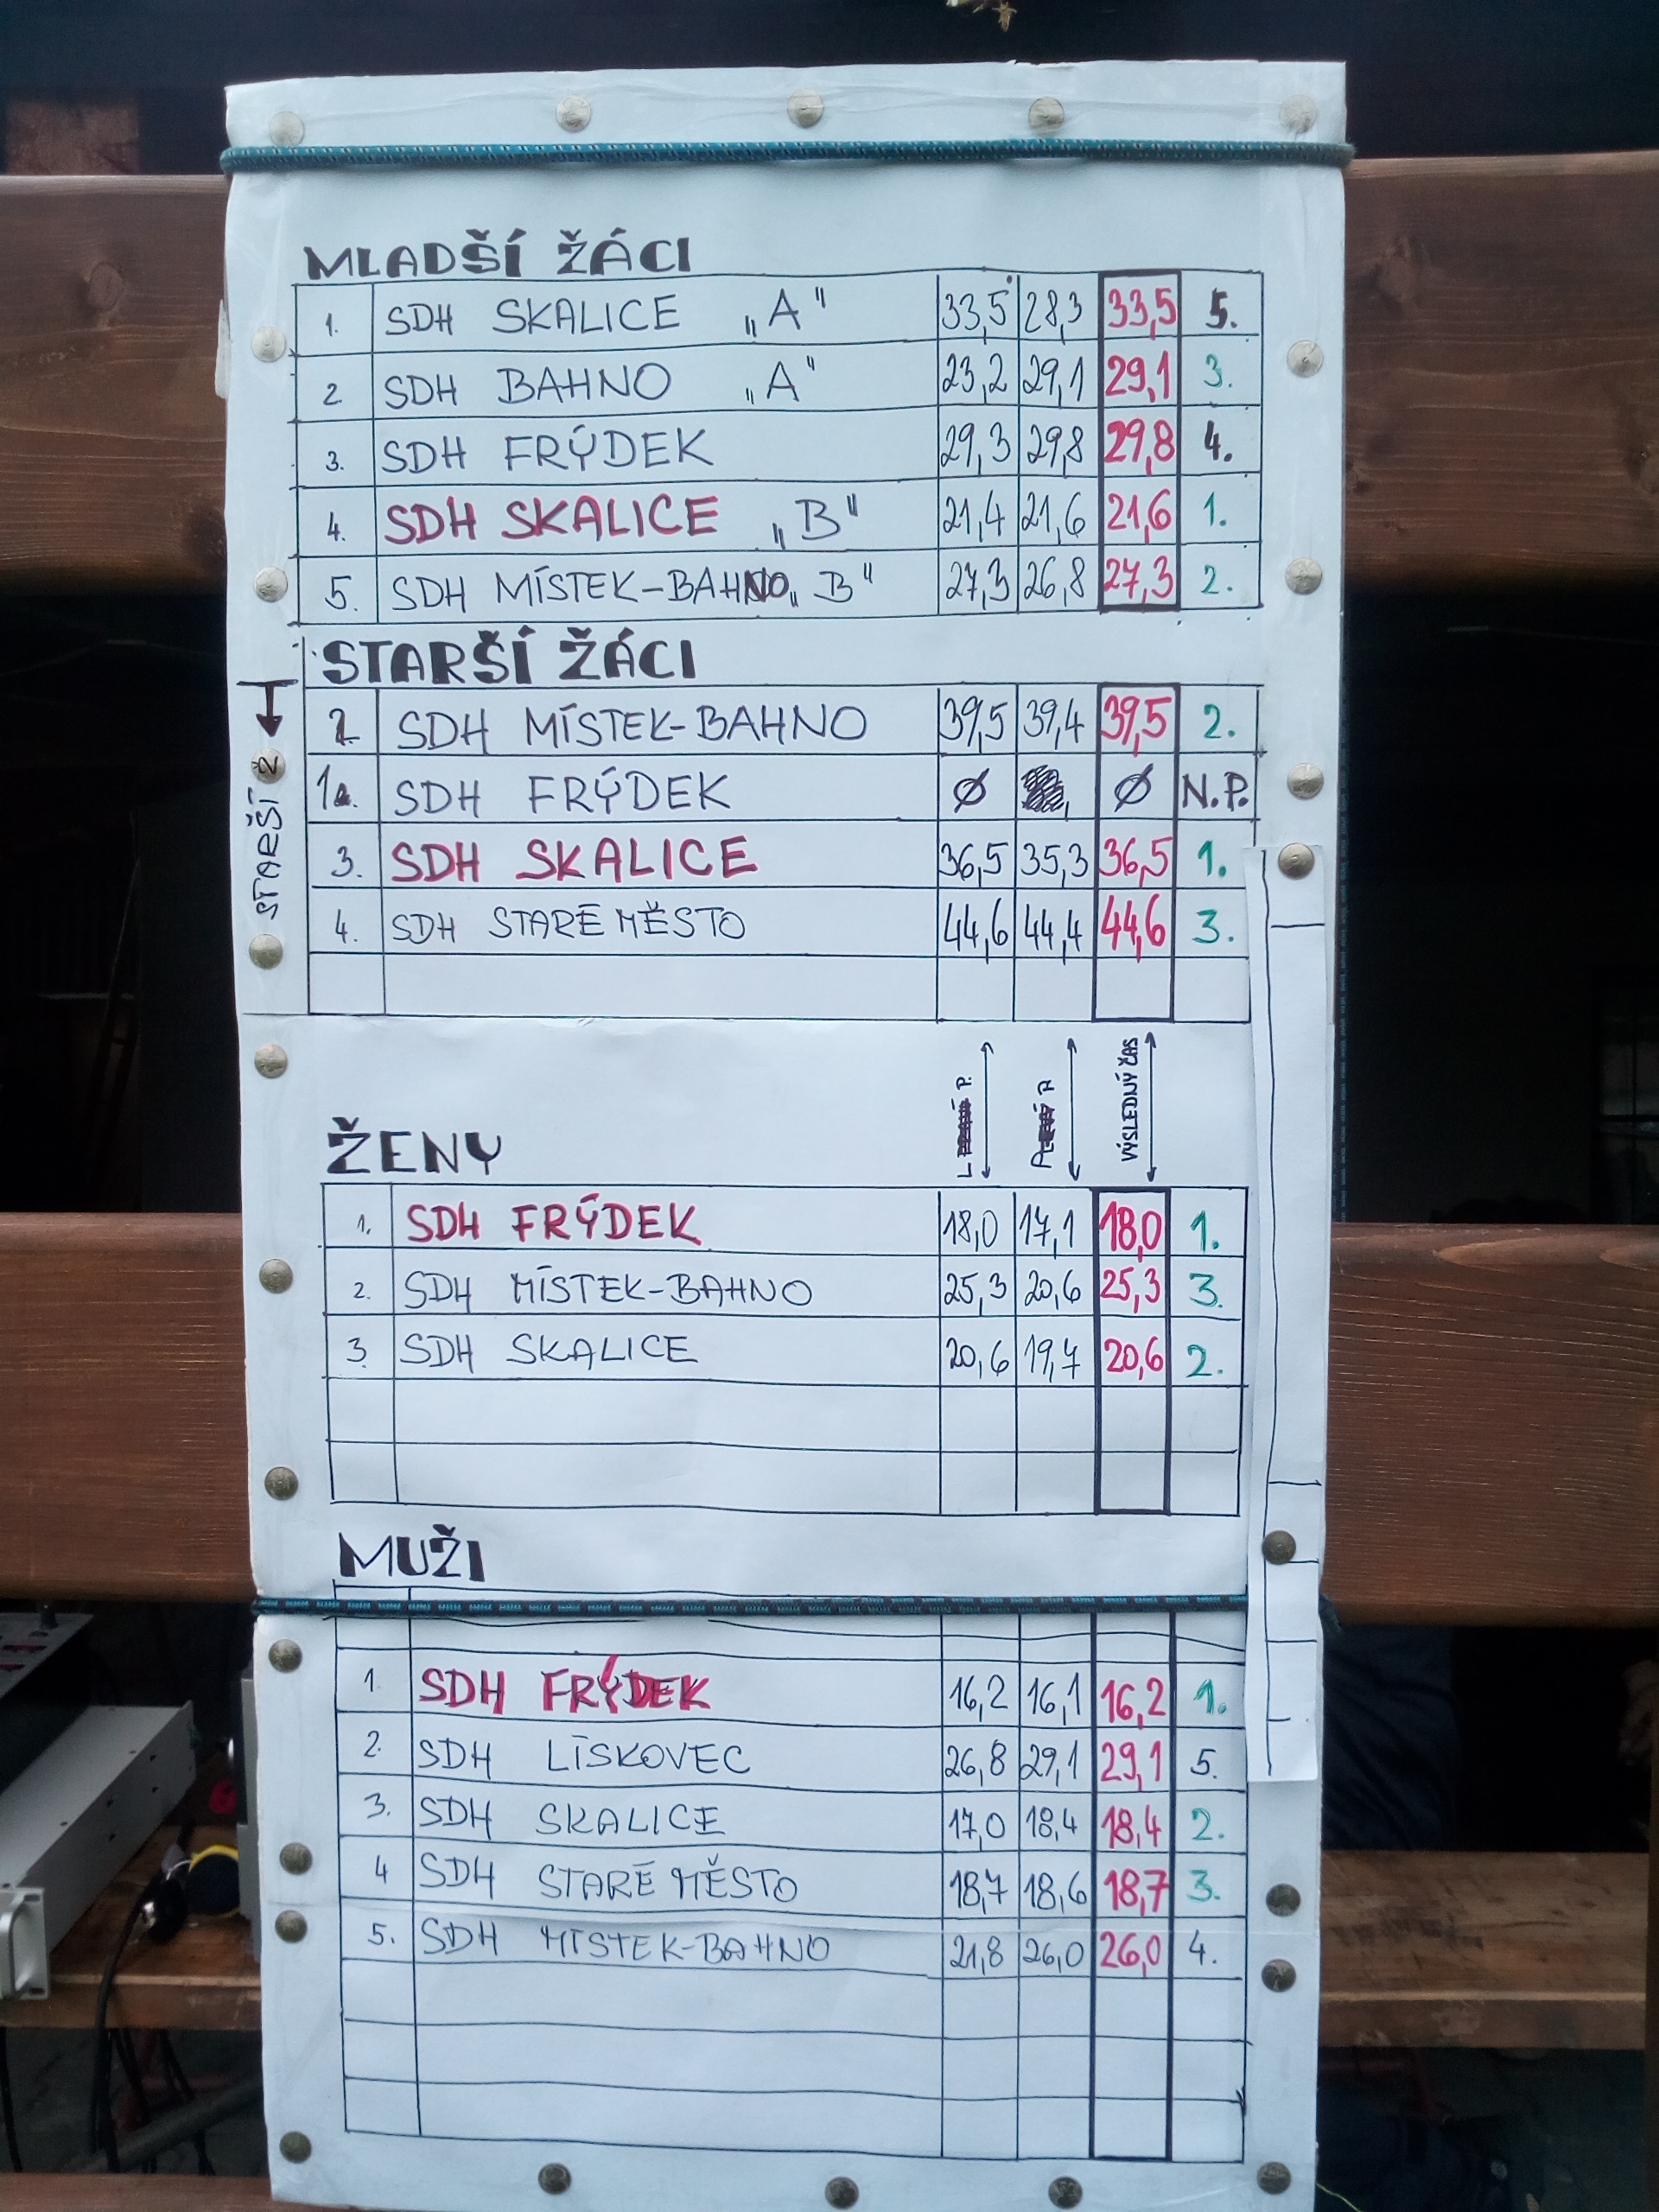 MLADŠÍ ŽÁCI
1. SDH SKALICE „A" 33,5 28,3 33,5 5.
2 SDH BAHNO „A" 23,2 29,1 29,1 3.
3. SDH FRÝDEK 29,3 29,8 29,8 4.
4. SDH SKALICE „B" 21,4 21,6 21,6 1.
5. SDH MÍSTEK-BAHNO „B" 27,3 26,8 27,3 2.
STARŠÍ ŽÁCI
2. SDH MÍSTEK-BAHNO 39,5 39,4 39,5 2.
1. SDH FRÝDEK Ø Ø N.P.
3. SDH SKALICE 36,5 35,3 36,5 1.
4. SDH STARÉ MĚSTO 44,6 44,4 44,6 3.
STARŠÍ Ž
L P.
P. P.
VÝSLEDNÝ ČAS
ŽENY
1. SDH FRÝDEK 18,0 17,1 18,0 1.
2. SDH MÍSTEK-BAHNO 25,3 20,6 25,3 3.
3. SDH SKALICE 20,6 19,7 20,6 2.
MUŽI
1. SDH FRÝDEK 16,2 16,1 16,2 1.
2. SDH LÍSKOVEC 26,8 29,1 29,1 5.
3. SDH SKALICE 17,0 18,4 18,4 2.
4 SDH STARÉ MĚSTO 18,7 18,6 18,7 3.
5. SDH MÍSTEK-BAHNO 21,8 26,0 26,0 4.